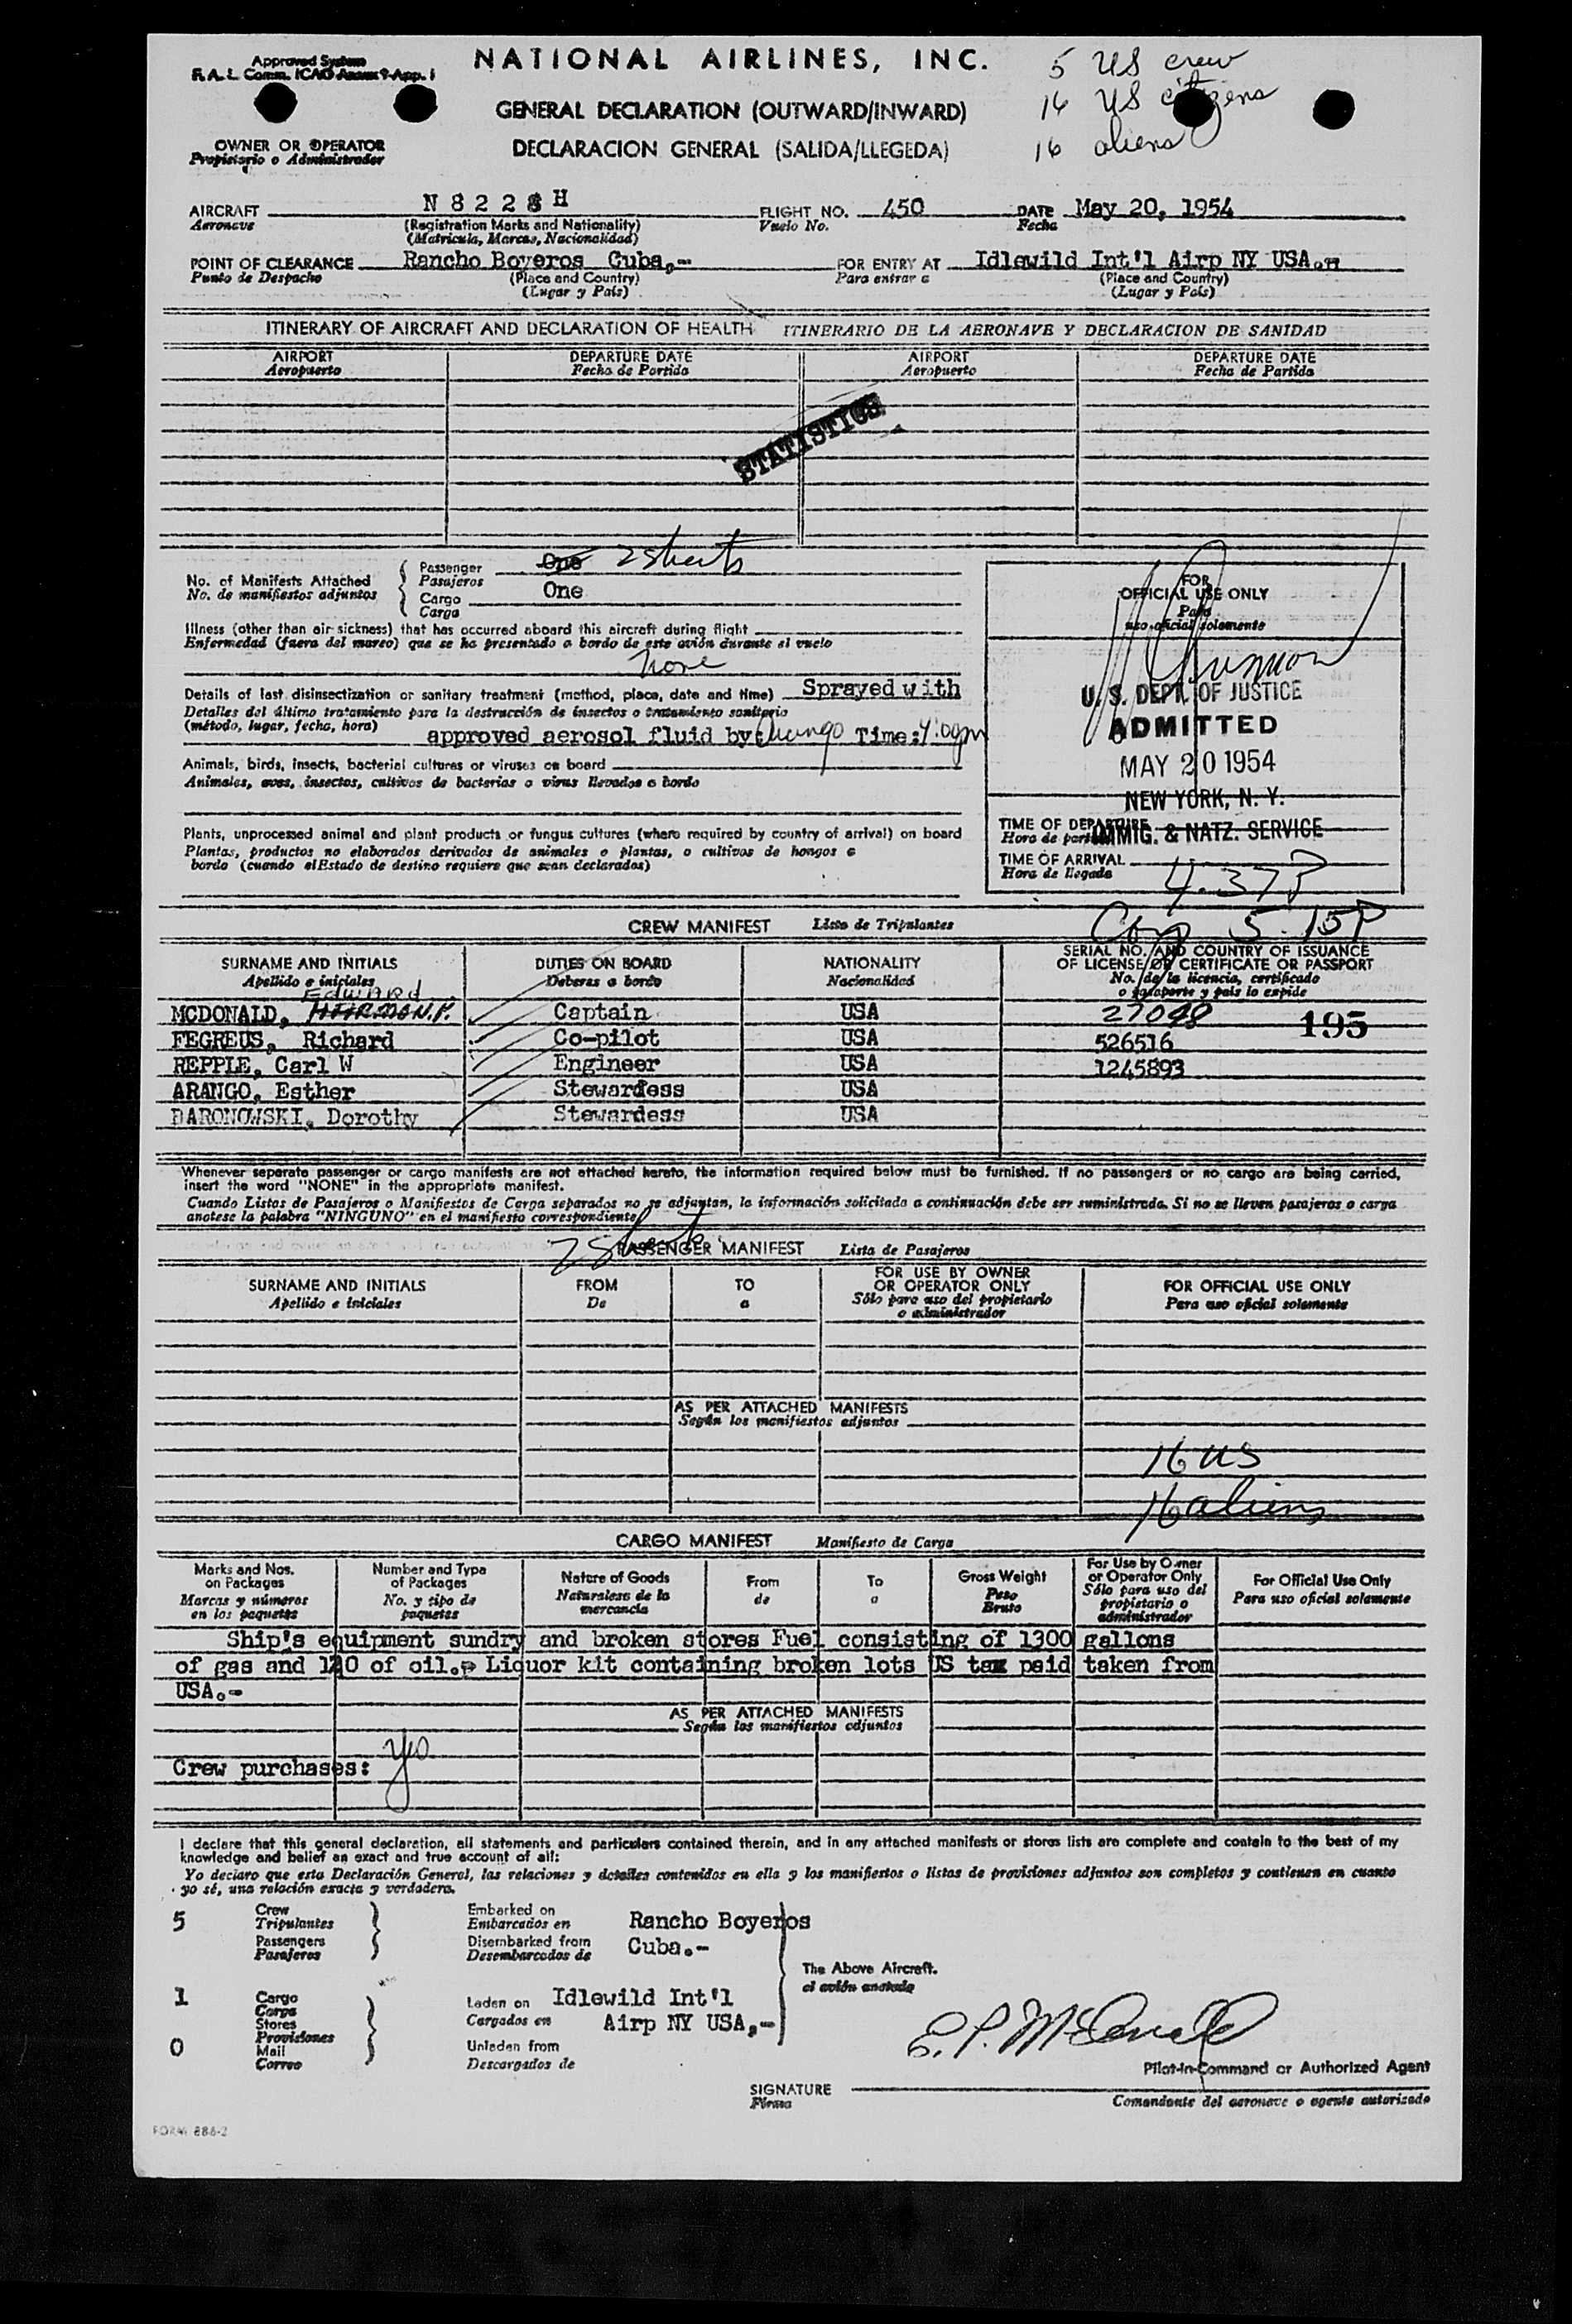 Approved System
F.A.L. Comm. ICAO Annex 9-App. 1
NATIONAL AIRLINES, INC.
5 US crew
16 US citizens
16 aliens
GENERAL DECLARATION (OUTWARD/INWARD)
DECLARACION GENERAL (SALIDA/LLEGEDA)
OWNER OR OPERATOR
Propietario o Administrador
AIRCRAFT N 8 2 2 8 H FLIGHT NO. 450 DATE May 20, 1954
Aeronave (Registration Marks and Nationality) Vuelo No. Fecha
(Matricula, Marcas, Nacionalidad)
POINT OF CLEARANCE Rancho Boyeros Cuba,- FOR ENTRY AT Idlewild Int'l Airp NY USA.
Punto de Despacho (Place and Country) Para entrar a (Place and Country)
(Lugar y País) (Lugar y País)
ITINERARY OF AIRCRAFT AND DECLARATION OF HEALTH ITINERARIO DE LA AERONAVE Y DECLARACION DE SANIDAD
AIRPORT DEPARTURE DATE AIRPORT DEPARTURE DATE
Aeropuerto Fecha de Partida Aeropuerto Fecha de Partida
STATISTICS
No. of Manifests Attached
No. de manifiestos adjuntos
Passenger One 2 Sheets
Pasajeros
Cargo One
Carga
Illness (other than air sickness) that has occurred aboard this aircraft during flight
Enfermedad (fuera del mareo) que se ha presentado a bordo de este avión durante el vuelo
None
Details of last disinsectization or sanitary treatment (method, place, date and time) Sprayed with
Detalles del último tratamiento para la destrucción de insectos o tratamiento sanitario
(método, lugar, fecha, hora) approved aerosol fluid by: Arango Time:
Animals, birds, insects, bacterial cultures or viruses on board
Animales, aves, insectos, cultivos de bacterias o virus llevados a bordo
Plants, unprocessed animal and plant products or fungus cultures (where required by country of arrival) on board
Plantas, productos no elaborados derivados de animales o plantas, o cultivos de hongos a
bordo (cuando el Estado de destino requiere que sean declarados)
FOR
OFFICIAL USE ONLY
Para
uso oficial solamente
U.S. DEPT. OF JUSTICE
ADMITTED
MAY 20 1954
NEW YORK, N. Y.
IMMIG. & NATZ. SERVICE
TIME OF DEPARTURE
Hora de partida
TIME OF ARRIVAL 4.37P
Hora de llegada
5.15P
CREW MANIFEST Lista de Tripulantes
SURNAME AND INITIALS DUTIES ON BOARD NATIONALITY SERIAL NO. AND COUNTRY OF ISSUANCE
OF LICENSE OR CERTIFICATE OR PASSPORT
Apellido e iniciales Deberes a bordo Nacionalidad No. de la licencia, certificado
o pasaporte y país lo expide
EDWARD
MCDONALD, HARMON.P. Captain USA 27098
195
FEGREUS, Richard Co-pilot USA 526516
REPPLE, Carl W Engineer USA 1245893
ARANGO, Esther Stewardess USA
BARONOWSKI, Dorothy Stewardess USA
Whenever separate passenger or cargo manifests are not attached hereto, the information required below must be furnished. If no passengers or no cargo are being carried,
insert the word "NONE" in the appropriate manifest.
Cuando Listas de Pasajeros o Manifiestos de Carga separados no se adjuntan, la información solicitada a continuación debe ser suministrada. Si no se lleven pasajeros o carga
anotese la palabra "NINGUNO" en el manifiesto correspondiente
2 Sheets
PASSENGER MANIFEST Lista de Pasajeros
SURNAME AND INITIALS FROM TO FOR USE BY OWNER OR OPERATOR ONLY FOR OFFICIAL USE ONLY
Apellido e iniciales De a Sólo para uso del propietario o administrador Para uso oficial solamente
AS PER ATTACHED MANIFESTS
Según los manifiestos adjuntos
16 US
16 aliens
CARGO MANIFEST Manifiesto de Carga
Marks and Nos. on Packages Number and Type of Packages Nature of Goods From To Gross Weight For Use by Owner or Operator Only For Official Use Only
Marcas y números en los paquetes No. y tipo de paquetes Naturaleza de la mercancia de a Peso Bruto Sólo para uso del propietario o administrador Para uso oficial solamente
Ship's equipment sundry and broken stores Fuel consisting of 1300 gallons
of gas and 120 of oil.- Liquor kit containing broken lots US tax paid taken from
USA.-
AS PER ATTACHED MANIFESTS
Según los manifiestos adjuntos
Crew purchases: yes
I declare that this general declaration, all statements and particulars contained therein, and in any attached manifests or stores lists are complete and contain to the best of my
knowledge and belief an exact and true account of all:
Yo declaro que esta Declaración General, las relaciones y detalles contenidos en ella y los manifiestos o listas de provisiones adjuntos son completos y contienen en cuanto
yo sé, una relación exacta y verdadera.
5 Crew Embarked on Rancho Boyeros
Tripulantes Embarcados en
Passengers Disembarked from Cuba.-
Pasajeros Desembarcados de
The Above Aircraft.
el avión anotado
1 Cargo Laden on Idlewild Int'l
Carga Cargados en Airp NY USA,-
Stores
Provisiones
0 Mail Unladen from
Correo Descargados de
E. P. McDonald
Pilot-in-Command or Authorized Agent
SIGNATURE
Firma Comandante del aeronave o agente autorizado
FORM 886-2